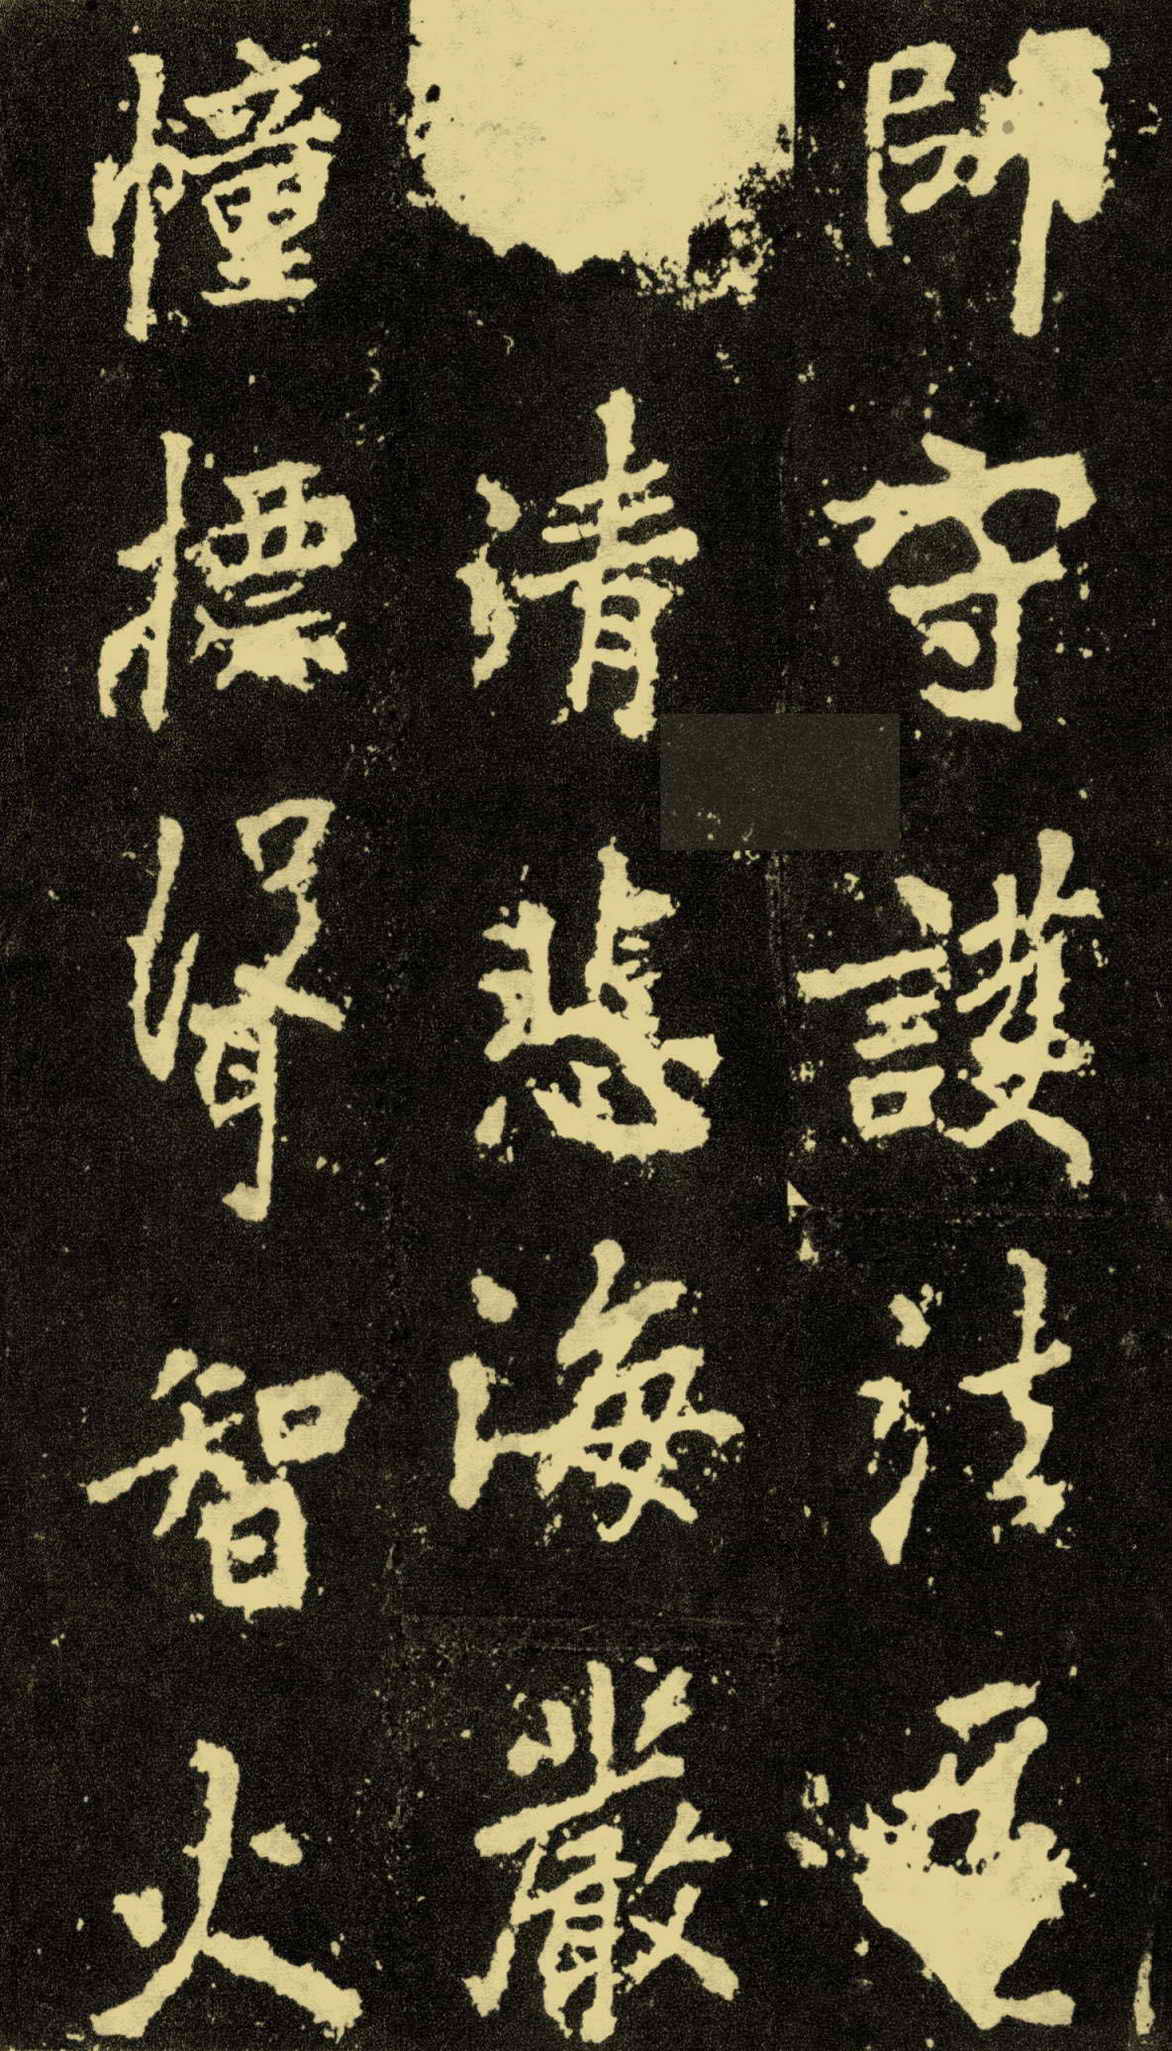 師守護法
清悲海嚴
憧標得智火